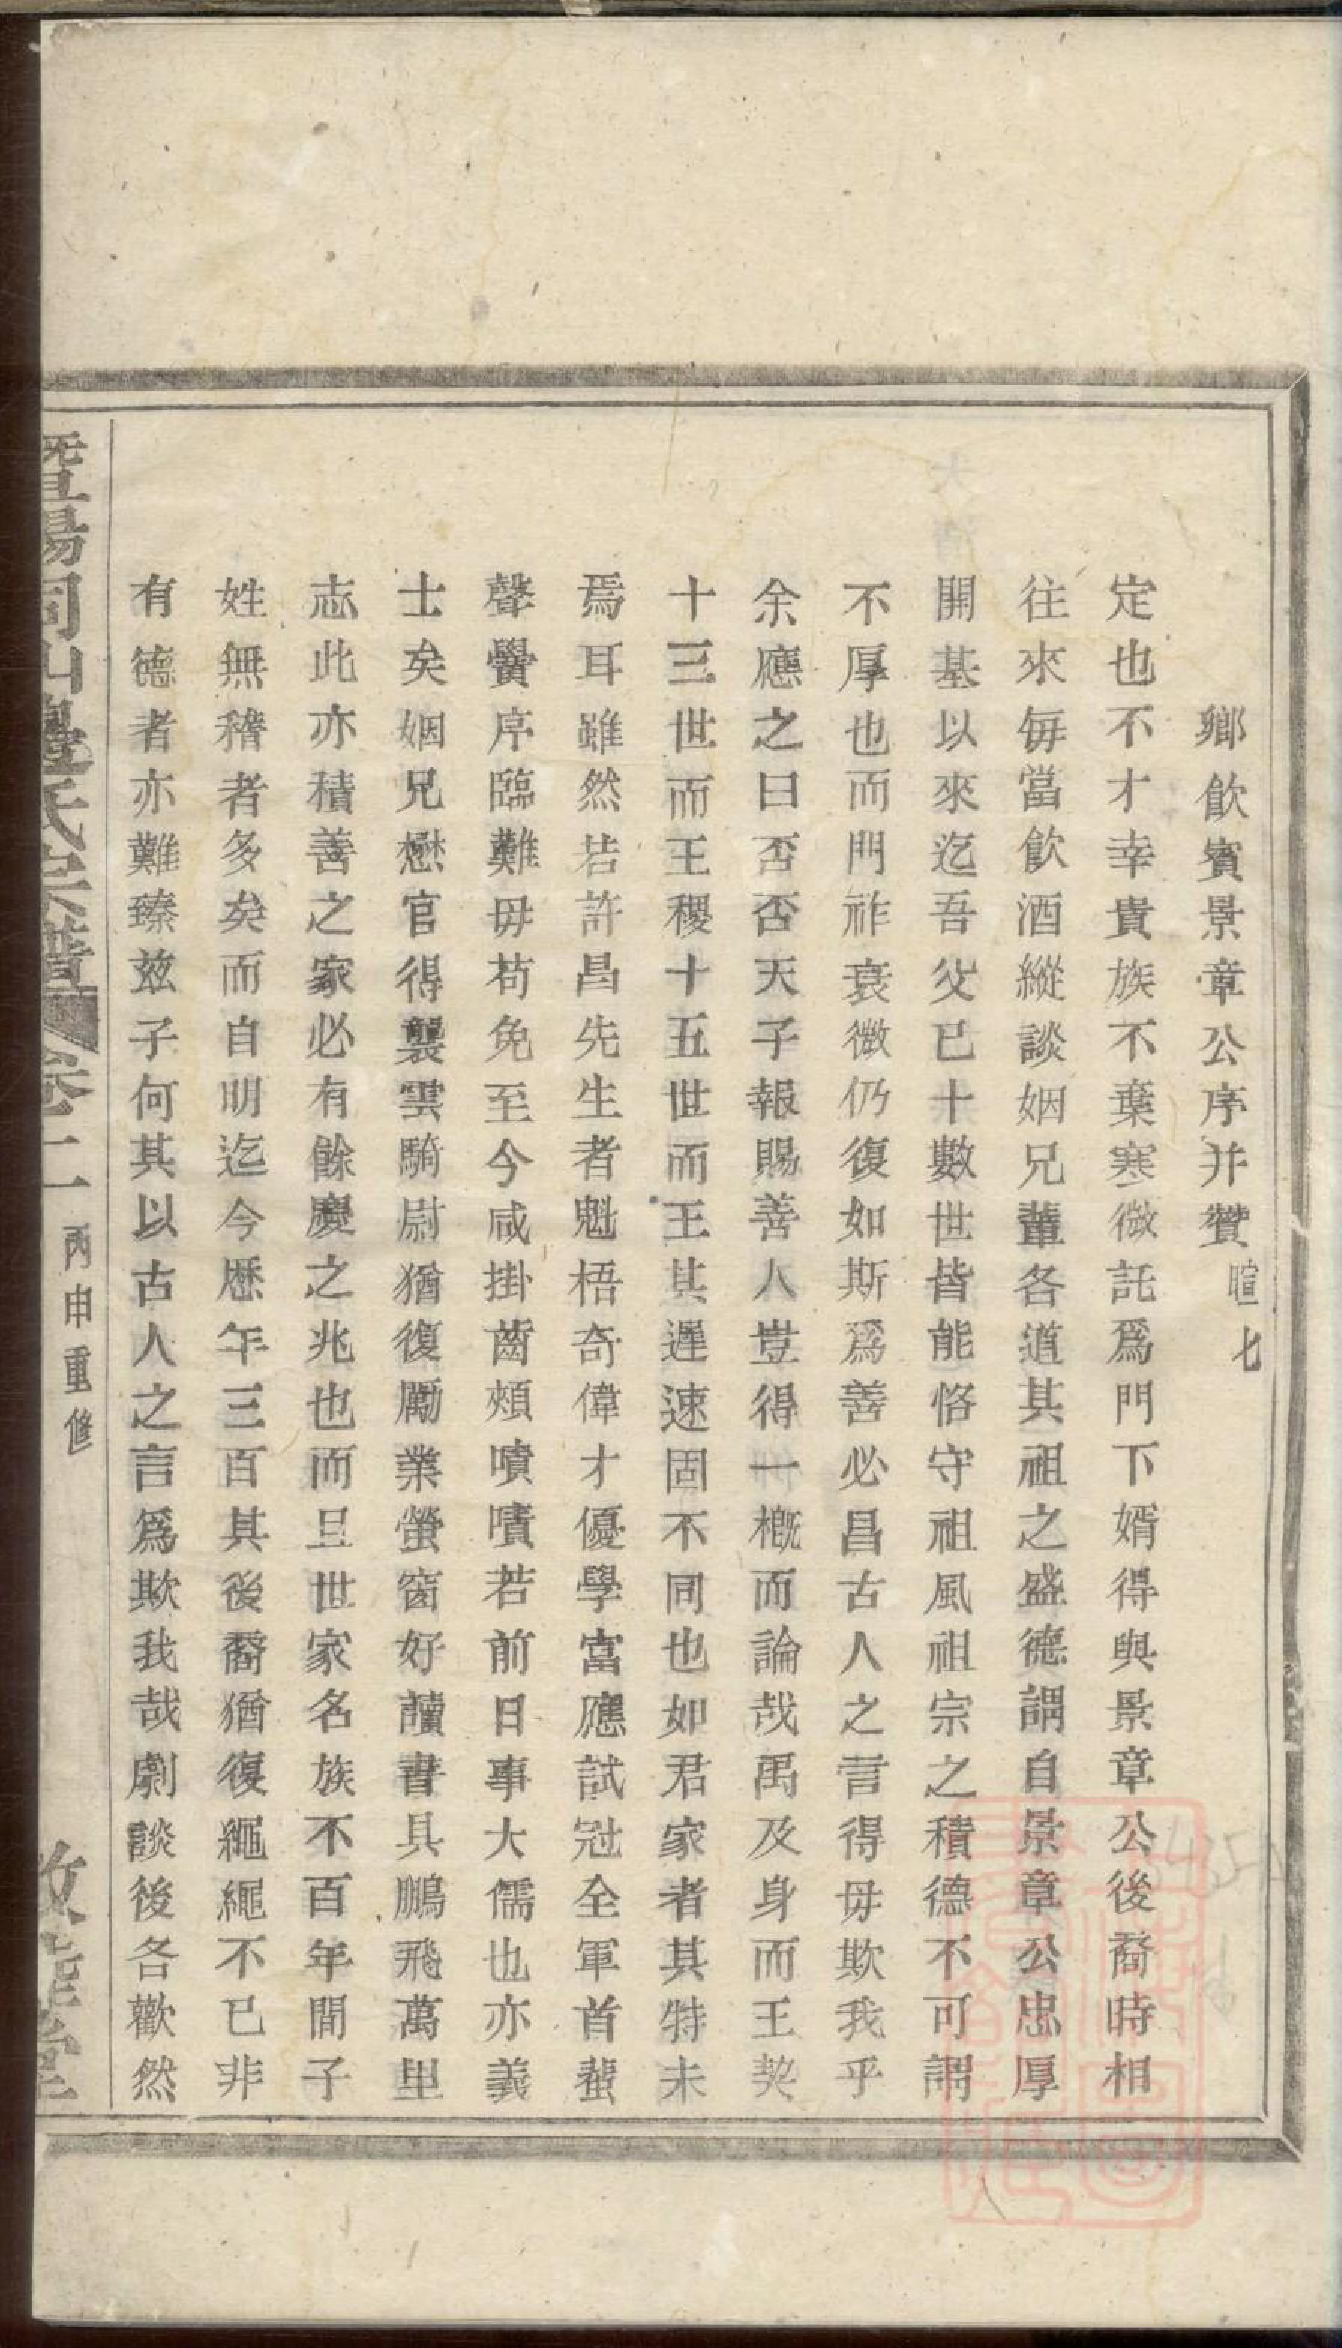 鄉飲賓景章公序并贊 暄七
定也不才幸貴族不棄寒微託爲門下婿得與景章公後裔時相
往來每當飲酒縱談姻兄輩各道其祖之盛德謂自景章公忠厚
開基以來迄吾父已十數世皆能恪守祖風祖宗之積德不可謂
不厚也而門祚衰微仍復如斯爲善必昌古人之言得毋欺我乎
余應之曰否否天子報賜善人豈得一概而論哉禹及身而王契
十三世而王稷十五世而王其遲速固不同也如君家者其特未
焉耳雖然若許昌先生者魁梧奇偉才優學富應試冠全軍首蜚
聲黌序臨難毋苟免至今咸掛齒頰嘖嘖若前日事大儒也亦義
士矣姻兄懋官得襲雲騎尉猶復勵業螢窗好讀書具鵬飛萬里
志此亦積善之家必有餘慶之兆也而且世家名族不百年間子
姓無稽者多矣而自明迄今歷年三百其後裔猶復繩繩不已非
有德者亦難臻茲子何其以古人之言爲欺我哉劇談後各歡然
暨陽同山邊氏宗譜 卷二 丙申重修 敦睦堂